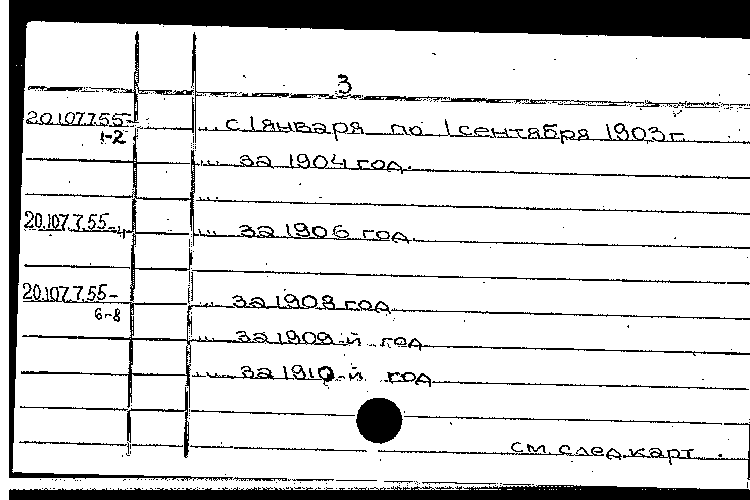 3
20.107.7.55-1-2 ... с 1 января по 1 сентября 1903 г.
... за 1904 год.
...
20.107.7.55-4 ... за 1906 год
20.107.7.55-6-8 ... за 1908 год
... за 1909-й год
... за 1910-й год
см. след. карт.